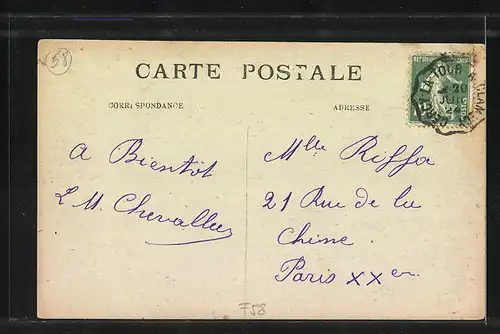 58
CARTE POSTALE
CORRESPONDANCE
ADRESSE
TOUR A CLAM
20
JUIL
A Bientôt
L M. Chevallier
Mlle Riffa
21 Rue de la
Chine
Paris XXem
F58